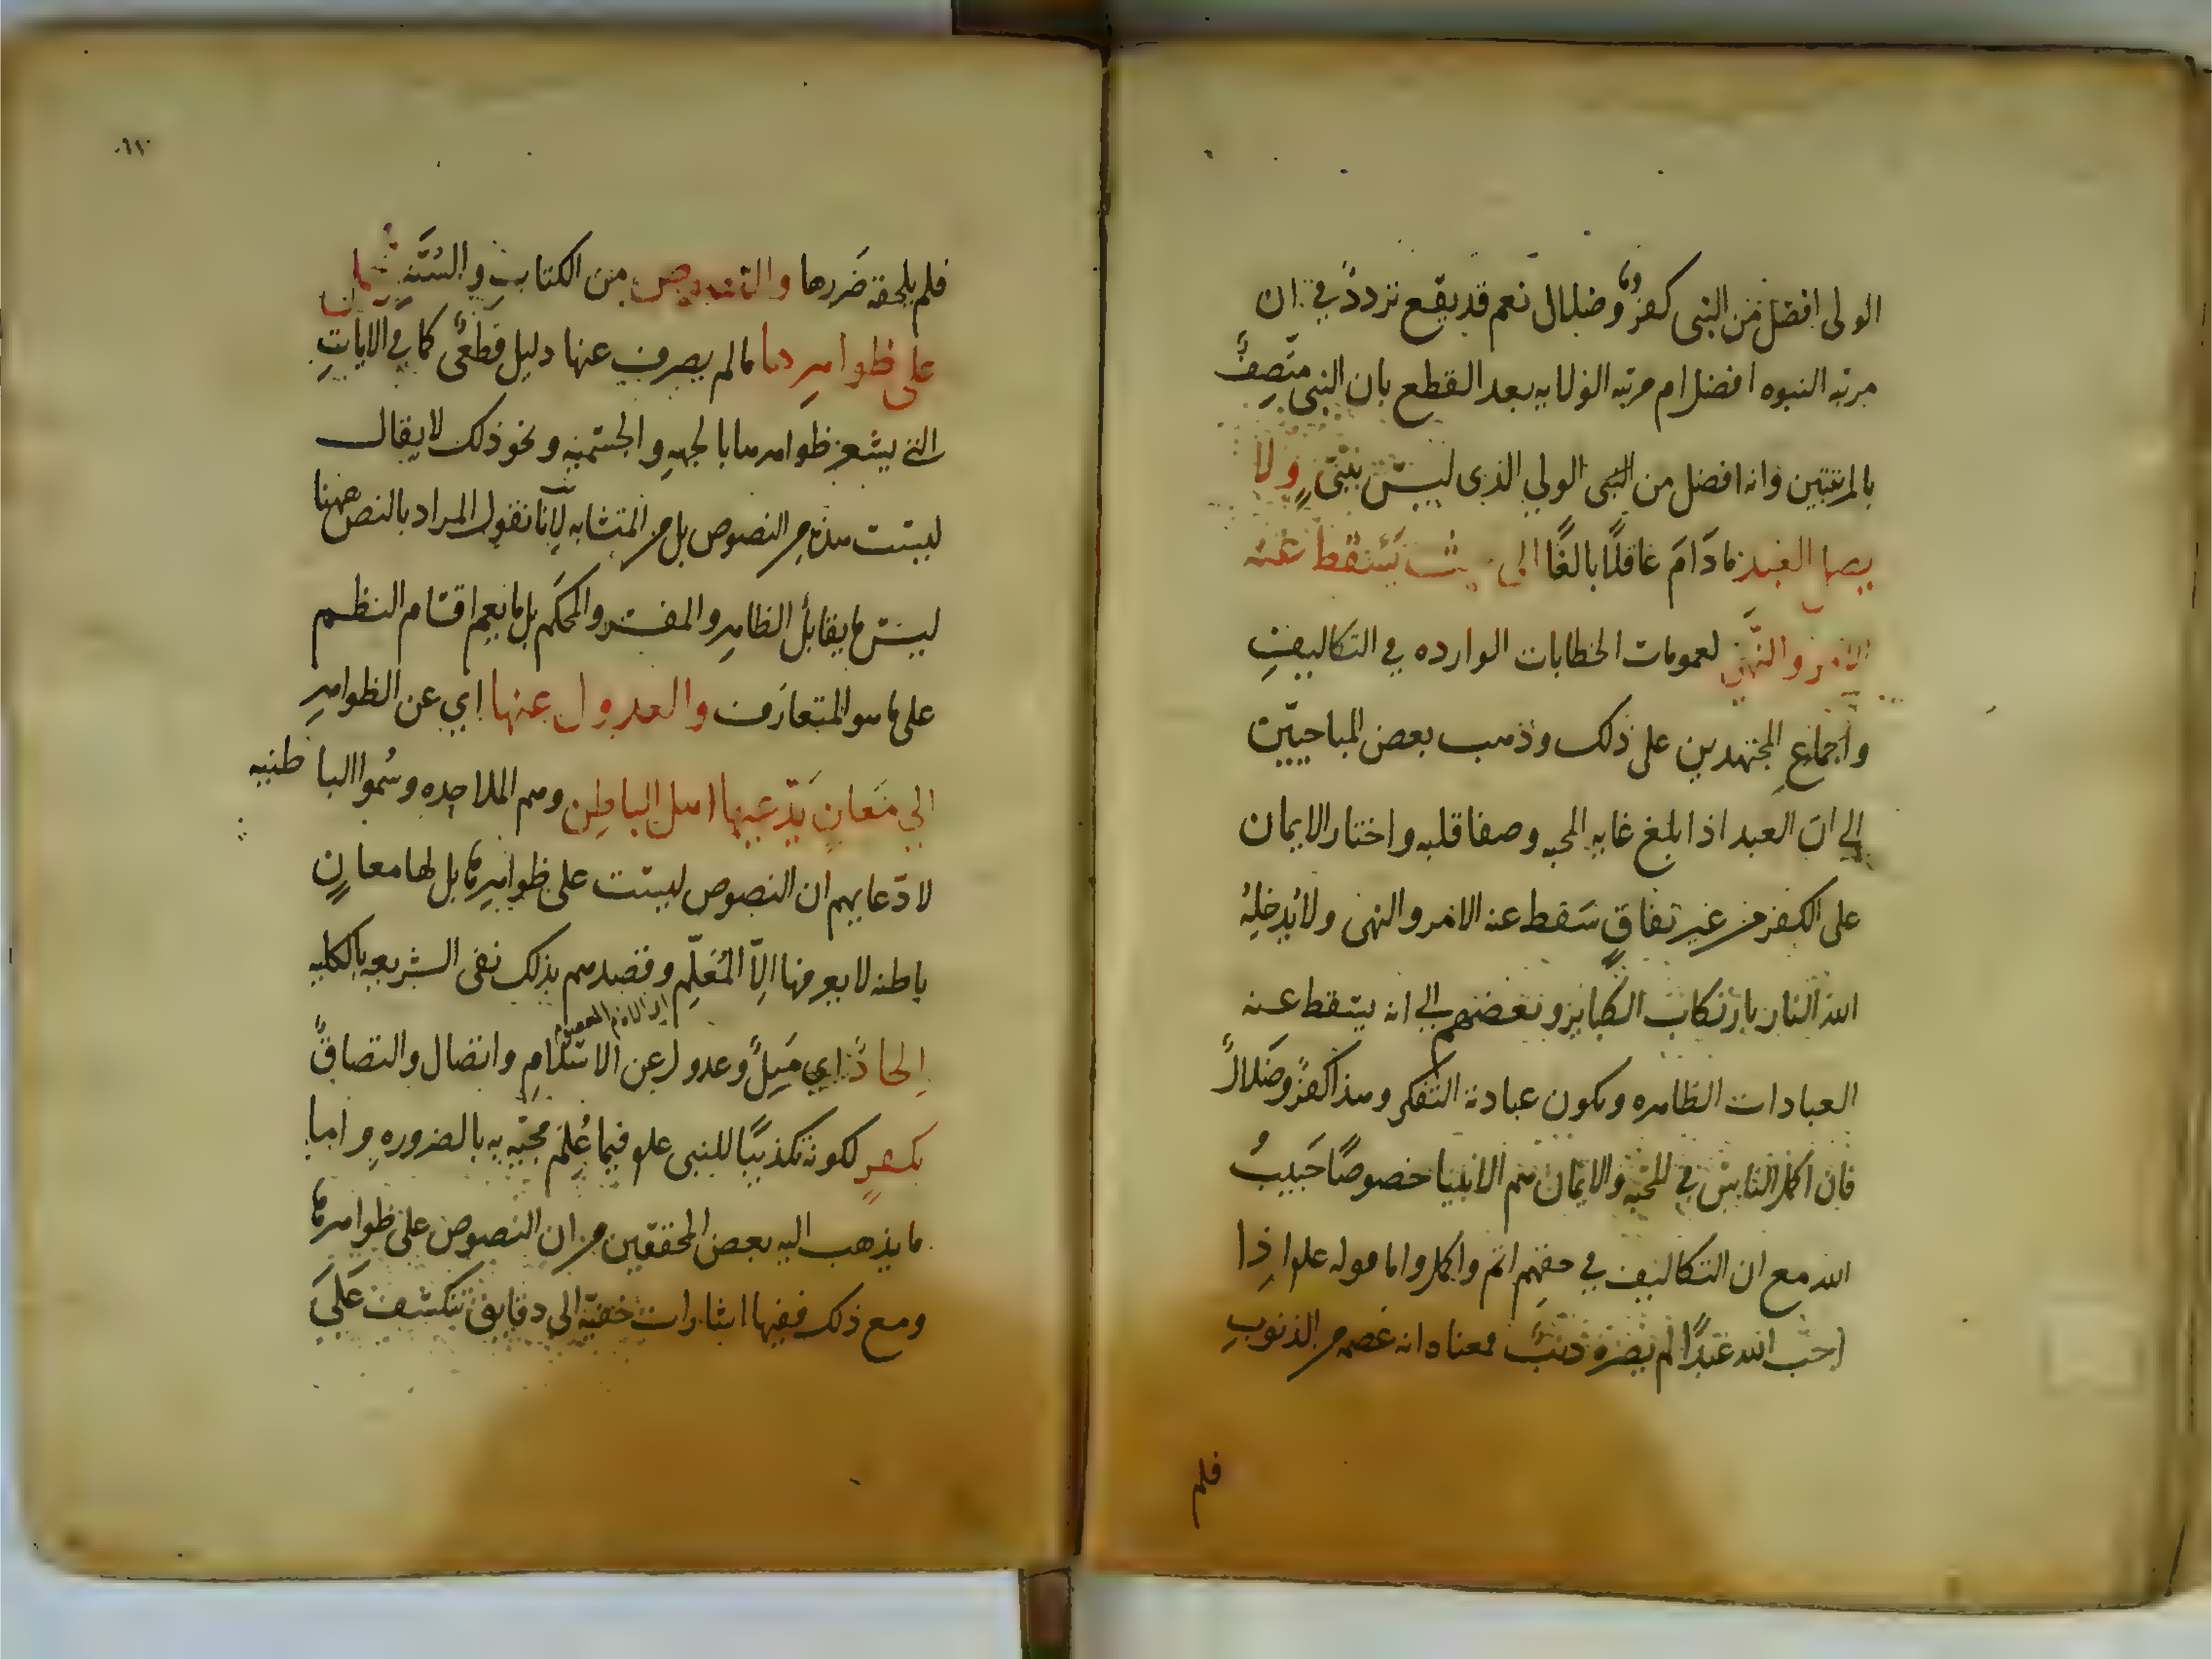 الولى افضل من النبى كفرٌ وضلال نعم قد يقع تردد في ان
مرتبه النبوه افضل ام مرتبه الولايه بعد القطع بان النبى متّصفٌ
بالمرتبتين وانه افضل من النبى الولي الذى ليس بنبيٍّ ولا
يصل العبد مادَامَ عاقلًا بالغًا الى حيث يَسْقط عنه
الامر والنّهي لعمومات الخطابات الوارده في التكاليف
واجماع المجتهدين على ذلك وذهب بعض المباحيّين
إلي ان العبد اذا بلغ غايه المحبه وصفا قلبه واختار الايمان
على الكفر من غير نفاقٍ سَقط عنه الامر والنهى ولا يُدخلهُ
الله النار بارتكاب الكباير وبعضهم إلي انه يسقط عنه
العبادات الظاهره ويكون عبادته التفكر وهذا كفرٌ وضَلالٌ
فان اكمل الناس في المحبه والايمان هم الانبيا خصوصًا حَبيبُ
الله مع ان التكاليف في حقهم اتم واكمل واما قوله علم اذِا
احب الله عَبدًا لم يضره ذنبٌ معناه انه عصمه من الذنوبِ
فلم
فلم يلحقه ضَررها والنصوص من الكتابِ والسُنَّهِ تحمل
على ظواهرِها مالم يصرف عنها دليل قطعىٌ كما في الاياتِ
التي يشعر ظواهرها بالجهه والجسميه ونحو ذلك لا يقال
ليست هذه من النصوص بل من المتشابه لأنا نقول المراد بالنص ههنا
ليس ما يقابل الظاهر والمفسر والمحكم بل ما يعم اقسام النظم
على ما هو المتعارف والعدول عنها اي عن الظواهرِ
الي مَعانٍ يَدّعيها اهل الباطِن وهم الملاحِده وسُموا الباطنيه
لادّعايهم ان النصوص ليست على ظواهرها بل لها معانٍ
باطنه لا يعرفها الاّ المُعَلّم وقصدهم بذلك نفى الشريعه بالكليه
اِلحادٌ اي مَيلٌ وعدول عن الاسلامِ واتصال والتصاقٌ
بكفرٍ لكونه تكذيبًا للنبى علم فيما عُلِمَ مجيّه به بالضرورهِ واما
ما يذهب اليه بعض المحققين من ان النصوص على ظواهرها
ومع ذلك ففيها اشارات خفيّه الى دقايق تنكشف عَلىَ